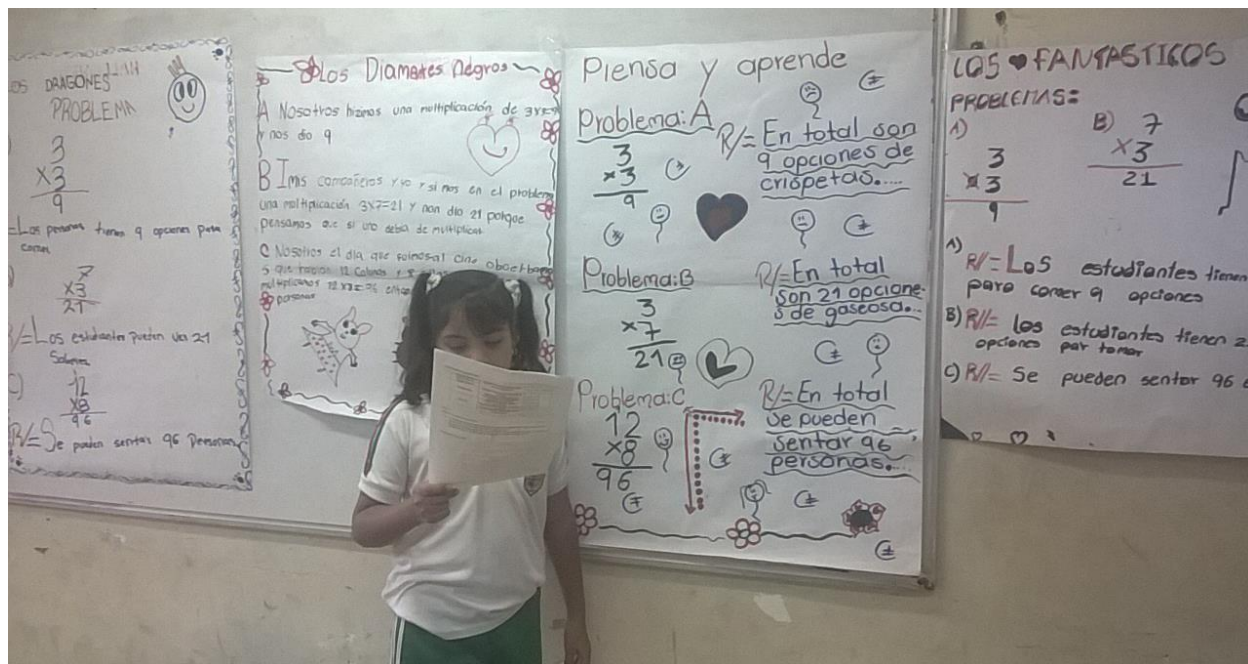 OS DRAGONES
PROBLEMA
3
x3
9
=Las personas tienen 9 opciones para
comer
7
x3
21
R/=Los estudiantes pueden ver 21
C)
12
x8
96
R/=Se pueden sentar 96 Personas
Los Diamantes negros
A Nosotros hizimos una multiplicación de 3x
y nos dio 9
B mis compañeros yo en el problema
una multiplicación 3x7=21 y non dio 21 porque
pensamos que si uno debia de multiplicar
C Nosotros el dia que fuimos al cine
s que habian 12 Colunas y 8
multiplicamos 12 x8=96
personas
Piensa y aprende
Problema:A
3
x3
9
R/=En total son
9 opciones de
crispetas....
Problema:B
3
x7
21
R/=En total
son 21 opcione
s de gaseosa...
Problema:C
12
x8
96
R/=En total
se pueden
sentar 96
personas...
LOS FANTASTICOS
PROBLEMAS=
A)
3
x3
9
B) 7
x3
21
A)
R/=LOS estudiantes tienen
para comer 9 opciones
B) R//= los estudiantes tienen 2
opciones par tomar
C) R//= Se pueden sentar 96